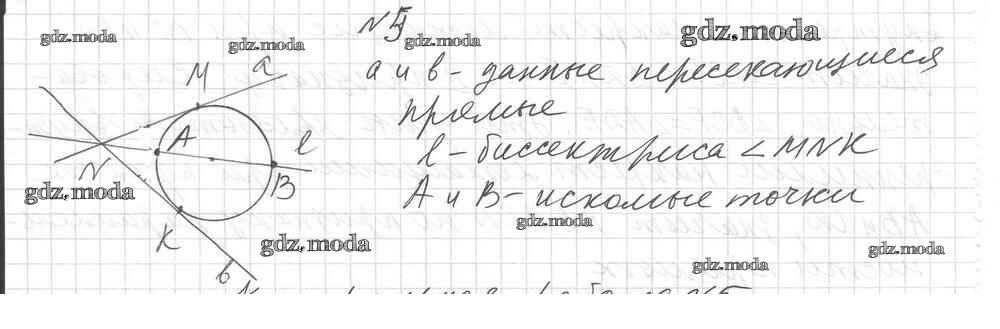 N5
а и в - данные пересекающиеся
прямые
l - биссектриса ∠MNK
A и B - искомые точки
M a
A l
N B
K
в
gdz.moda
gdz.moda
gdz.moda
gdz.moda
gdz.moda
gdz.moda
gdz.moda
gdz.moda
gdz.moda